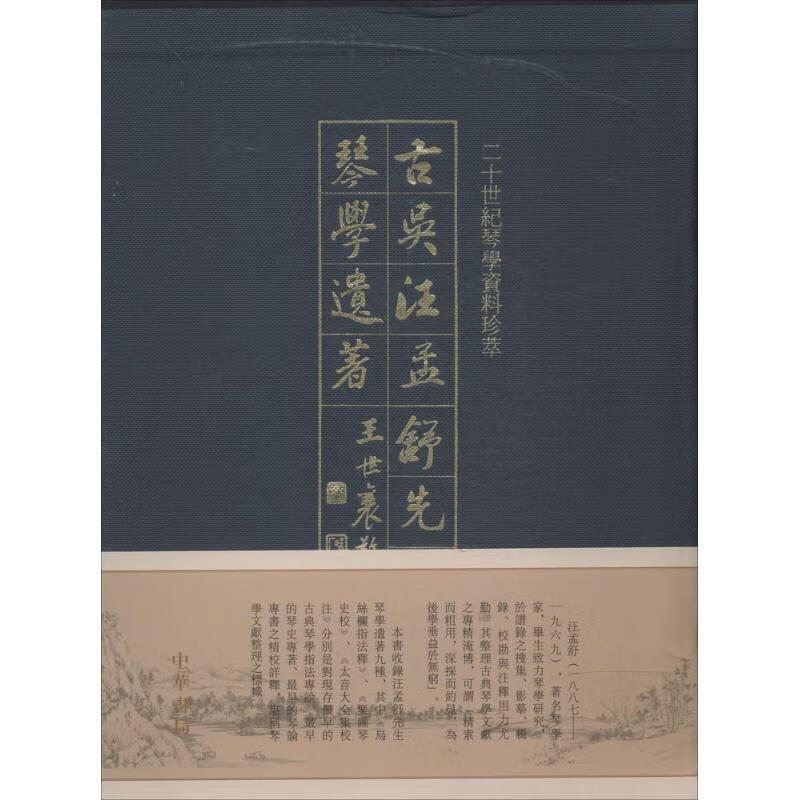 二十世紀琴學資料珍萃
古吳汪孟舒先
琴學遺著
王世襄
汪孟舒（一八八七——
一九六九），著名琴學
家，畢生致力琴學研究，
於譜錄之搜集、影摹、輯
錄、校勘與注釋用力尤
勤。其整理古典琴學文獻
之專精淹博，可謂「精索
而粗用，深探而約是，為
後學垂益於無窮」。
本書收錄汪孟舒先生
琴學遺著九種，其中《烏
絲欄指法釋》、《樂圃琴
史校》、《太音大全集校
注》分別是對現存最早的
古典琴學指法專論、最早
的琴史專著、最早的琴論
專書之精校詳釋，堪稱琴
學文獻整理之標幟。
中華書局